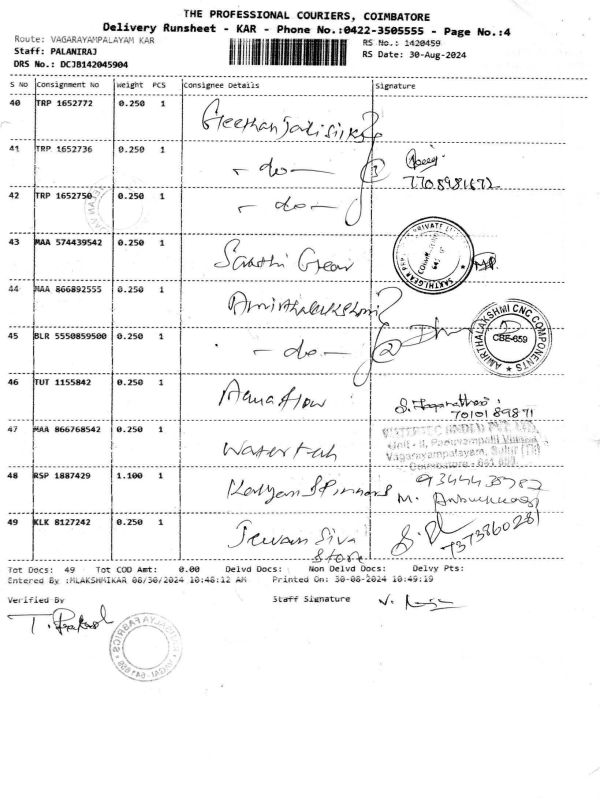 THE PROFESSIONAL COURIERS, COIMBATORE
Delivery Runsheet - KAR - Phone No.:0422-3505555 - Page No.:4
Route: VAGARAYAMPALAYAM KAR RS No.: 1420459
Staff: PALANIRAJ RS Date: 30-Aug-2024
DRS No.: DCJB142045904
S No Consignment No Weight PCS Consignee Details Signature
40 TRP 1652772 0.250 1
41 TRP 1652736 0.250 1 - do -
7708981672
42 TRP 1652750 0.250 1 - do -
43 MAA 574439542 0.250 1 Sakthi Gear
SAKTHI GEAR PRIVATE
44 MAA 866892555 0.250 1 Amirthalakshmi
45 BLR 5550859500 0.250 1 - do - 2
AMIRTHALAKSHMI CNC COMPONENTS
CBE-659
46 TUT 1155842 0.250 1 Aquaflow
7010189871
47 MAA 866768542 0.250 1 Watertech
WATERTEC (INDIA) PVT. LTD.
Unit - II, Paruvampalli Village,
Vagarayampalayam, Sulur (TK)
Coimbatore - 641 659.
48 RSP 1887429 1.100 1 Kalyan Spinners
9344435782
49 KLK 8127242 0.250 1 Jeevan Siva
Store
7373860281
Tot Docs: 49 Tot COD Amt: 0.00 Delvd Docs: Non Delvd Docs: Delvy Pts:
Entered By :MLAKSHMIKAR 08/30/2024 10:48:12 AM Printed On: 30-08-2024 10:49:19
Verified By Staff Signature
T. Prakash